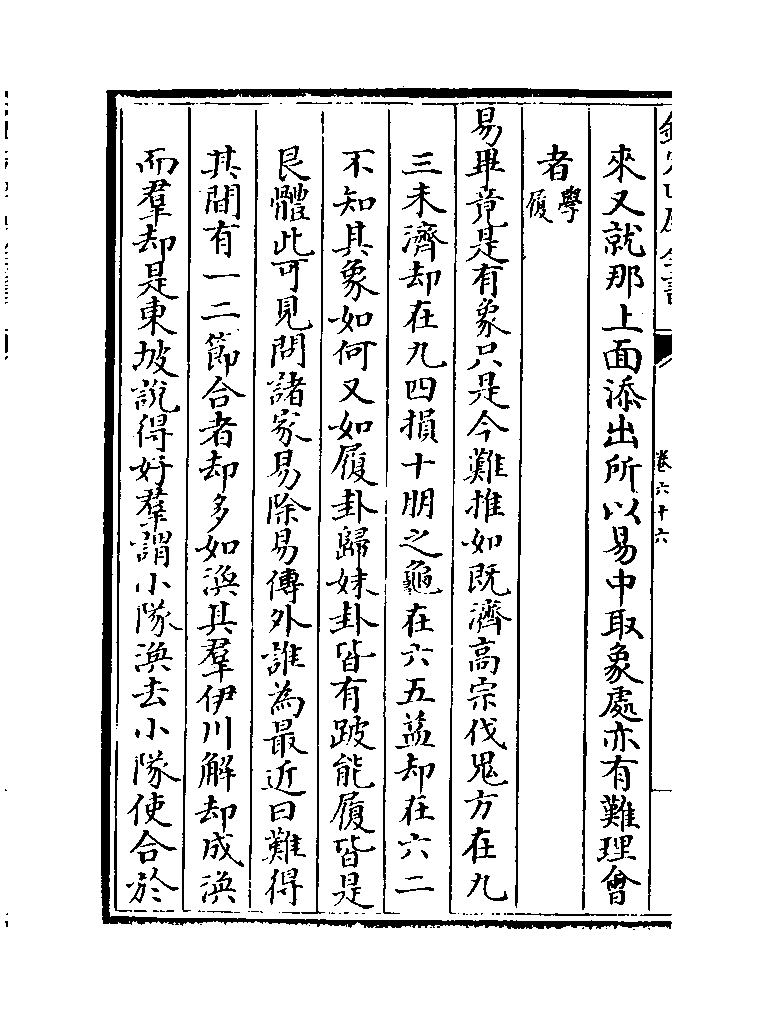 來又就那上面添出所以易中取象處亦有難理會
者學履
易畢竟是有象只是今難推如既濟高宗伐鬼方在九
三未濟却在九四損十朋之龜在六五益却在六二
不知其象如何又如履卦歸妹卦皆有跛能履皆是
艮體此可見問諸家易除易傳外誰為最近曰難得
其間有一二節合者却多如渙其羣伊川解却成渙
而羣却是東坡說得好羣謂小隊渙去小隊使合於
卷六十六